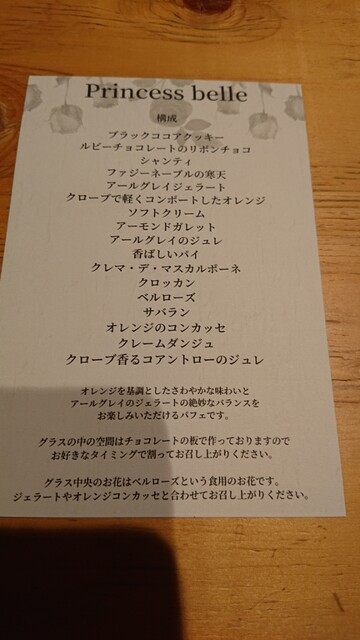 Princess belle
構成
ブラックココアクッキー
ルビーチョコレートのリボンチョコ
シャンティ
ファジーネーブルの寒天
アールグレイジェラート
クローブで軽くコンポートしたオレンジ
ソフトクリーム
アーモンドガレット
アールグレイのジュレ
香ばしいパイ
クレマ・デ・マスカルポーネ
クロッカン
ベルローズ
サバラン
オレンジのコンカッセ
クレームダンジュ
クローブ香るコアントローのジュレ
オレンジを基調としたさわやかな味わいと
アールグレイのジェラートの絶妙なバランスを
お楽しみいただけるパフェです。
グラスの中の空間はチョコレートの板で作っておりますので
お好きなタイミングで割ってお召し上がりください。
グラス中央のお花はベルローズという食用のお花です。
ジェラートやオレンジコンカッセと合わせてお召し上がりください。